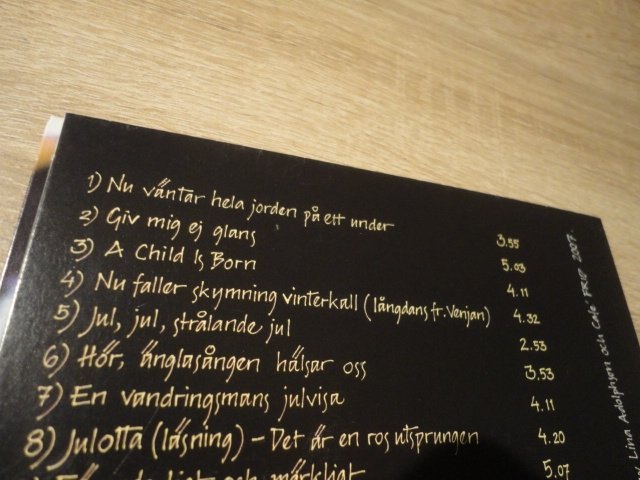 1) Nu väntar hela jorden på ett under 3.55
2) Giv mig ej glans 5.03
3) A Child Is Born 4.11
4) Nu faller skymning vinterkall (långdans fr. Venjan) 4.32
5) Jul, jul, strålande jul 2.53
6) Hör, änglasången hälsar oss 3.53
7) En vandringsmans julvisa 4.11
8) Julotta (läsning) – Det är en ros utsprungen 4.20
och märkligt 5.07
Lina Adolphson och Café FRID 2007.